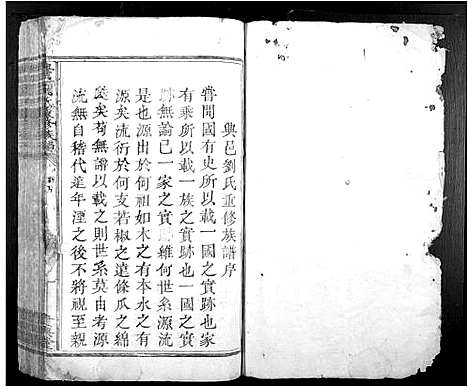 興邑劉氏重修族譜序
甞聞國有史所以載一國之實跡也家
有乘所以載一族之實跡也一國之實
跡無論已一家之實跡維何世系源流
是也源出於何祖如木之有本水之有
源矣流衍於何支若椒之遠條瓜之綿
瓞矣苟無譜以載之則世系莫由考源
流無自稽代遠年湮之後不將視至親